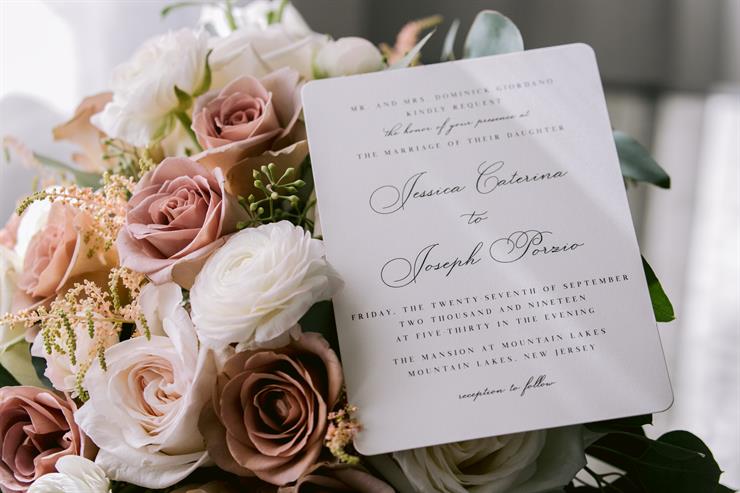 MR. AND MRS. DOMINICK GIORDANO
KINDLY REQUEST
the honor of your presence at
THE MARRIAGE OF THEIR DAUGHTER
Jessica Caterina
to
Joseph Porzio
FRIDAY, THE TWENTY-SEVENTH OF SEPTEMBER
TWO THOUSAND AND NINETEEN
AT FIVE-THIRTY IN THE EVENING
THE MANSION AT MOUNTAIN LAKES
MOUNTAIN LAKES, NEW JERSEY
reception to follow